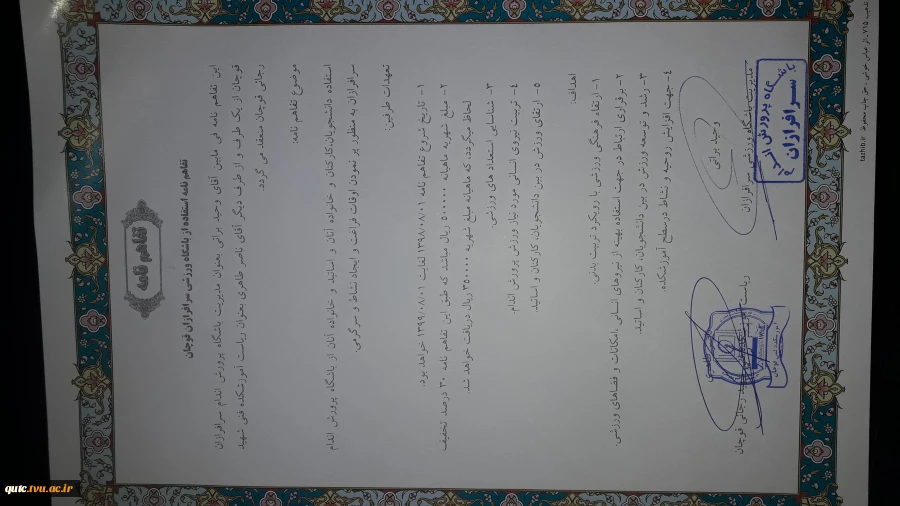 تفاهم نامه
تفاهم نامه استفاده از باشگاه ورزشی سرافرازان قوچان
این تفاهم نامه فی مابین آقای وحید براتی بعنوان مدیریت باشگاه پرورش اندام سرافرازان
قوچان از یک طرف و از طرف دیگر آقای ناصر طاهری بعنوان ریاست آموزشکده فنی شهید
رجائی قوچان منعقد می گردد.
موضوع تفاهم نامه:
استفاده دانشجویان،کارکنان و خانواده آنان و اساتید و خانواده آنان از باشگاه پرورش اندام
سرافرازان به منظور پر نمودن اوقات فراغت و ایجاد نشاط و سرگرمی.
تعهدات طرفین:
۱- تاریخ شروع تفاهم نامه ۱۳۹۸/۰۸/۰۱ لغایت ۱۳۹۹/۰۸/۰۱ خواهد بود.
۲- مبلغ شهریه ماهیانه ۵۰۰۰۰۰ ریال میباشد که طبق این تفاهم نامه ۳۰ درصد تخفیف
لحاظ میگردد، که ماهیانه مبلغ شهریه ۳۵۰۰۰۰ ریال دریافت خواهد شد.
۳- شناسایی استعدادهای ورزشی.
۴- تربیت نیروی انسانی مورد نیاز ورزش پرورش اندام.
۵- ارتقای ورزش در بین دانشجویان، کارکنان و اساتید.
اهداف:
۱- ارتقاء فرهنگی ورزشی با رویکرد تربیت بدنی.
۲- برقراری ارتباط در جهت استفاده بهینه از نیروهای انسانی ،امکانات و فضاهای ورزشی
۳- رشد و توسعه ورزش در بین دانشجویان، کارکنان و اساتید.
۴- جهت افزایش روحیه و نشاط درسطح آموزشکده.
مدیریت باشگاه ورزشی سرافرازان
وحید براتی
باشگاه پرورش اندام
سرافرازان
ریاست رجائی قوچان
tazhib.ir
qutc.tvu.ac.ir